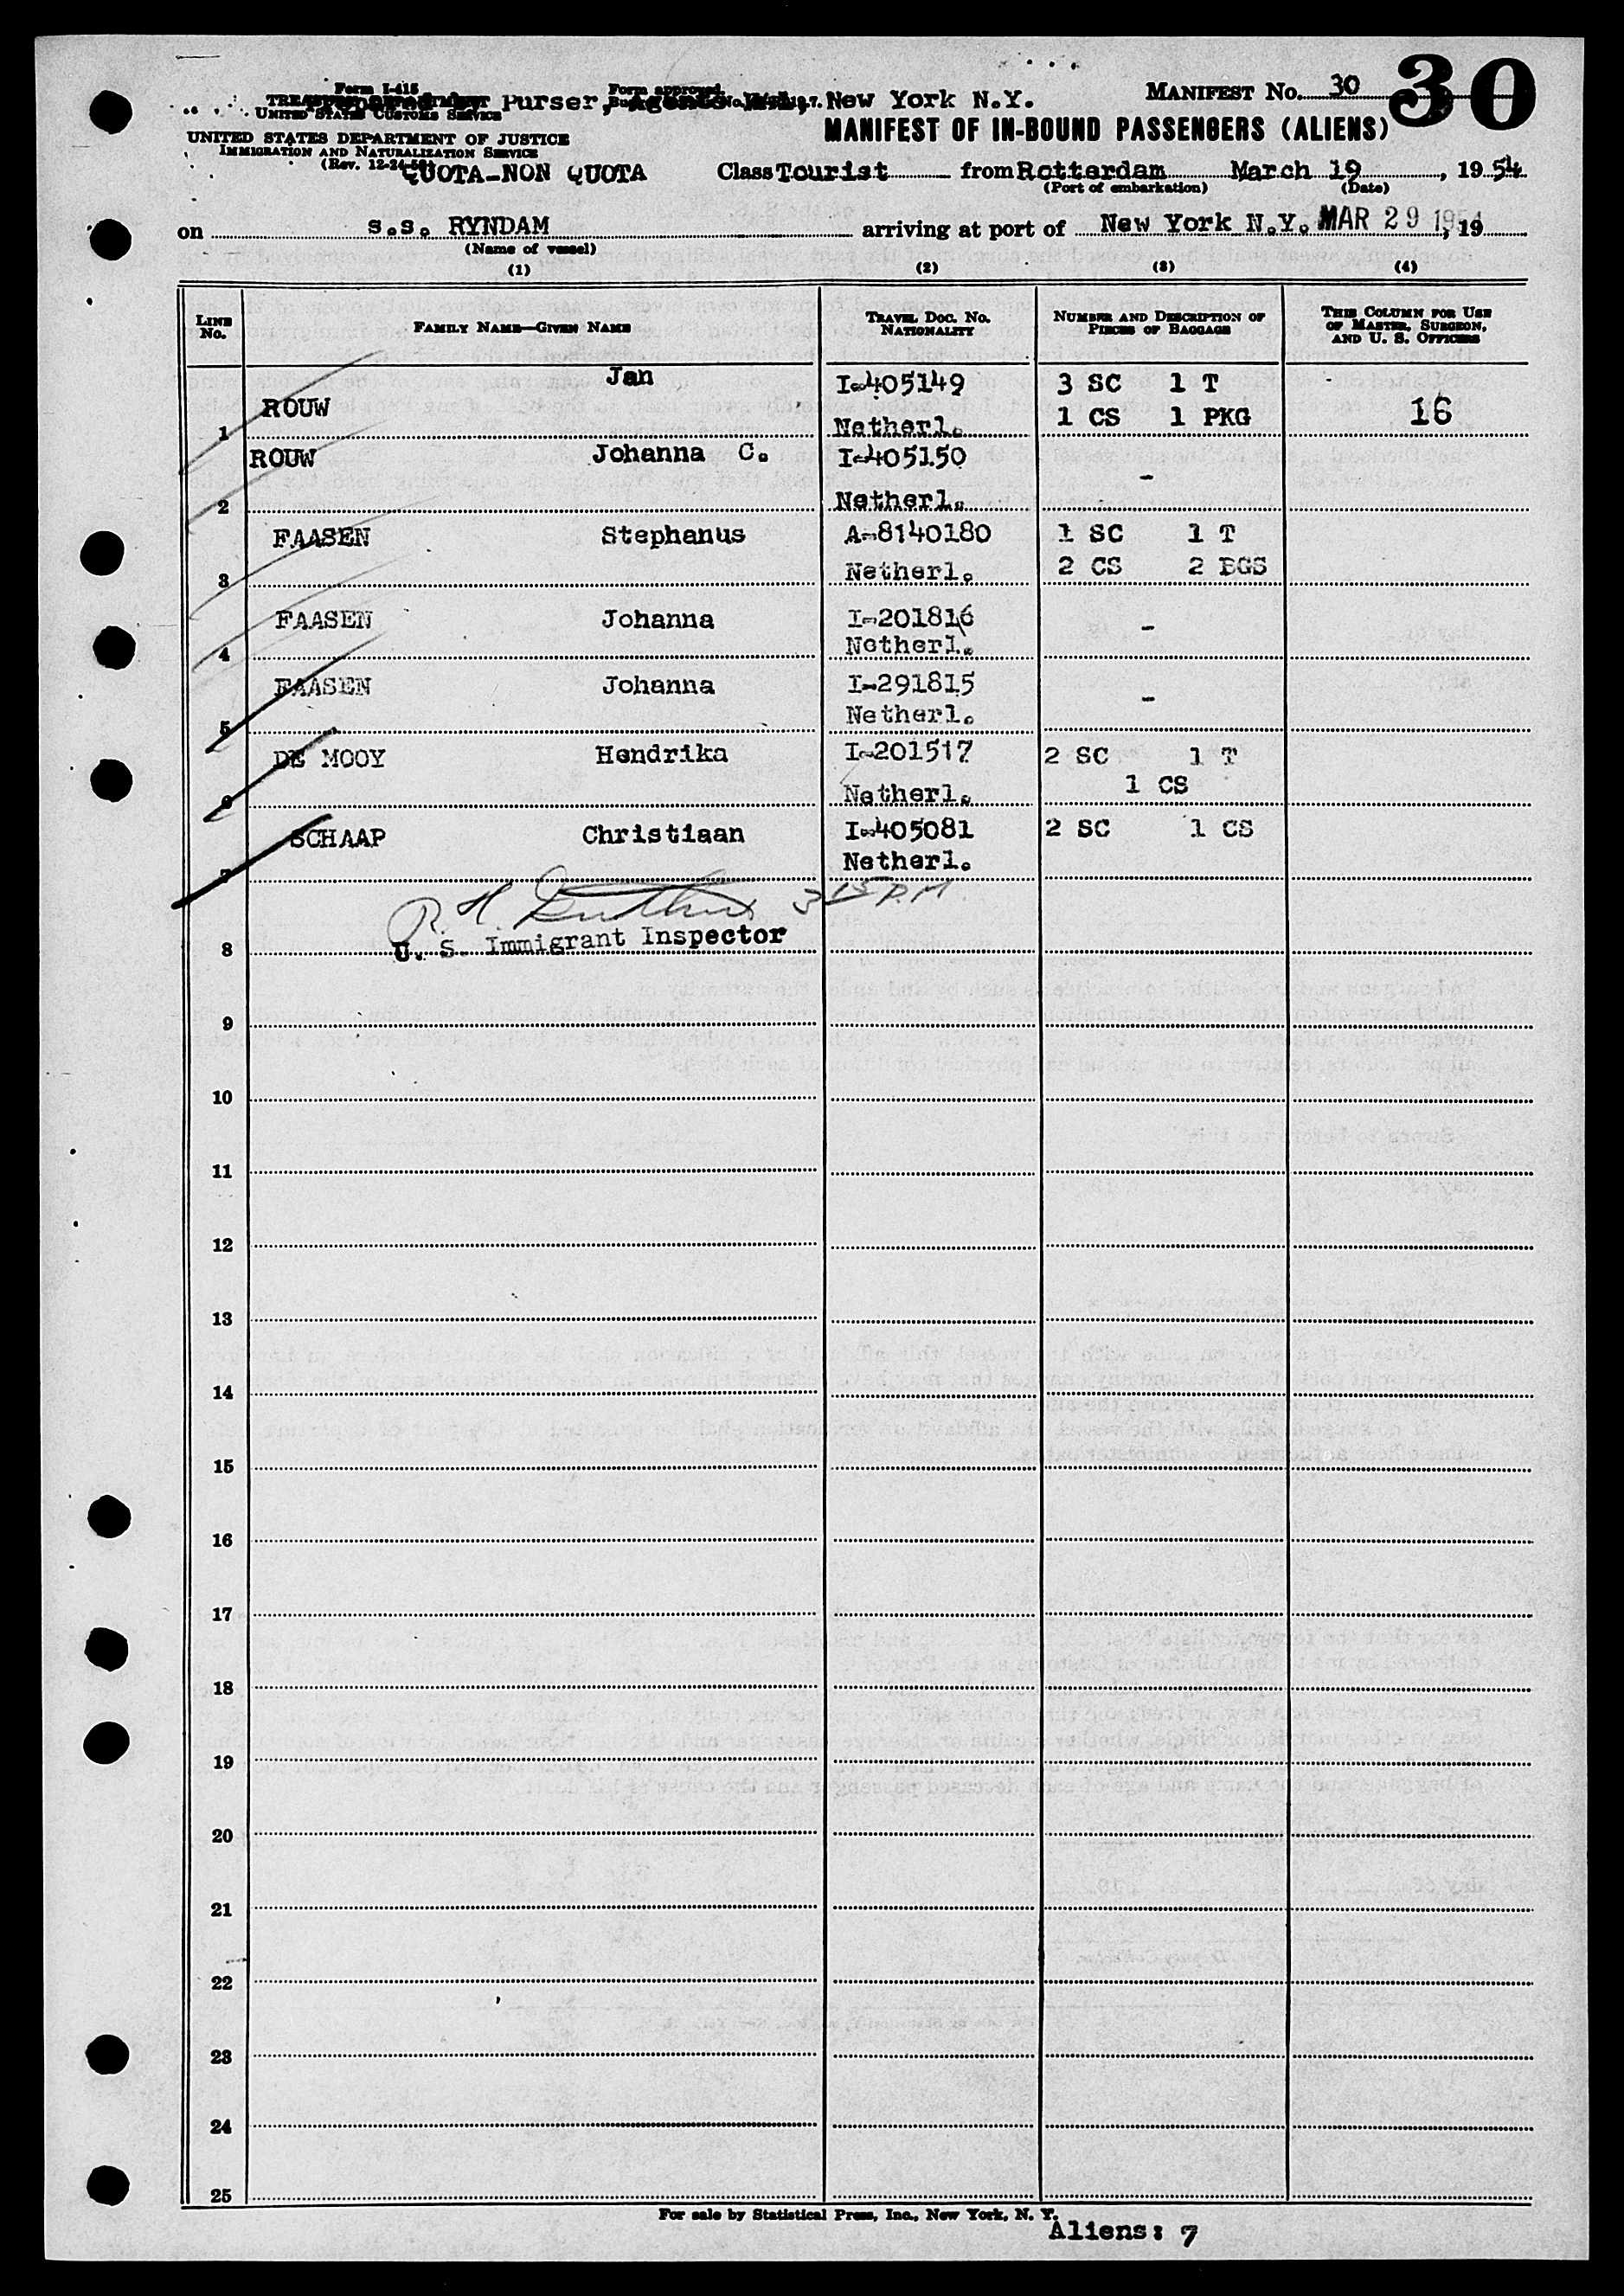 Form I-415
TREASURY DEPARTMENT
UNITED STATES CUSTOMS SERVICE
Form approved.
Purser, New York N.Y.
MANIFEST NO. 30
30
UNITED STATES DEPARTMENT OF JUSTICE
IMMIGRATION AND NATURALIZATION SERVICE
MANIFEST OF IN-BOUND PASSENGERS (ALIENS)
QUOTA-NON QUOTA Class Tourist from Rotterdam March 19, 1954
(Port of embarkation) (Date)
on s.s. RYNDAM arriving at port of New York N.Y. MAR 29 1954, 19
(Name of vessel)
(1) (2) (3) (4)
LINE NO.
FAMILY NAME—GIVEN NAME
TRAVEL DOC. NO. NATIONALITY
NUMBER AND DESCRIPTION OF PIECES OF BAGGAGE
THIS COLUMN FOR USE OF MASTER, SURGEON, AND U. S. OFFICERS
Jan I-405149 3 SC 1 T
1 ROUW Netherl. 1 CS 1 PKG 16
ROUW Johanna C. I-405150 -
2 Netherl.
FAASEN Stephanus A-8140180 1 SC 1 T
3 Netherl. 2 CS 2 BGS
FAASEN Johanna I-201816 -
4 Netherl.
FAASEN Johanna I-291815 -
5 Netherl.
DE MOOY Hendrika I-201517 2 SC 1 T
6 Netherl. 1 CS
SCHAAP Christiaan I-405081 2 SC 1 CS
7 Netherl.
R. H. 3 15 P.M.
8 U. S. Immigrant Inspector
9
10
11
12
13
14
15
16
17
18
19
20
21
22
23
24
25
For sale by Statistical Press, Inc., New York, N. Y.
Aliens: 7